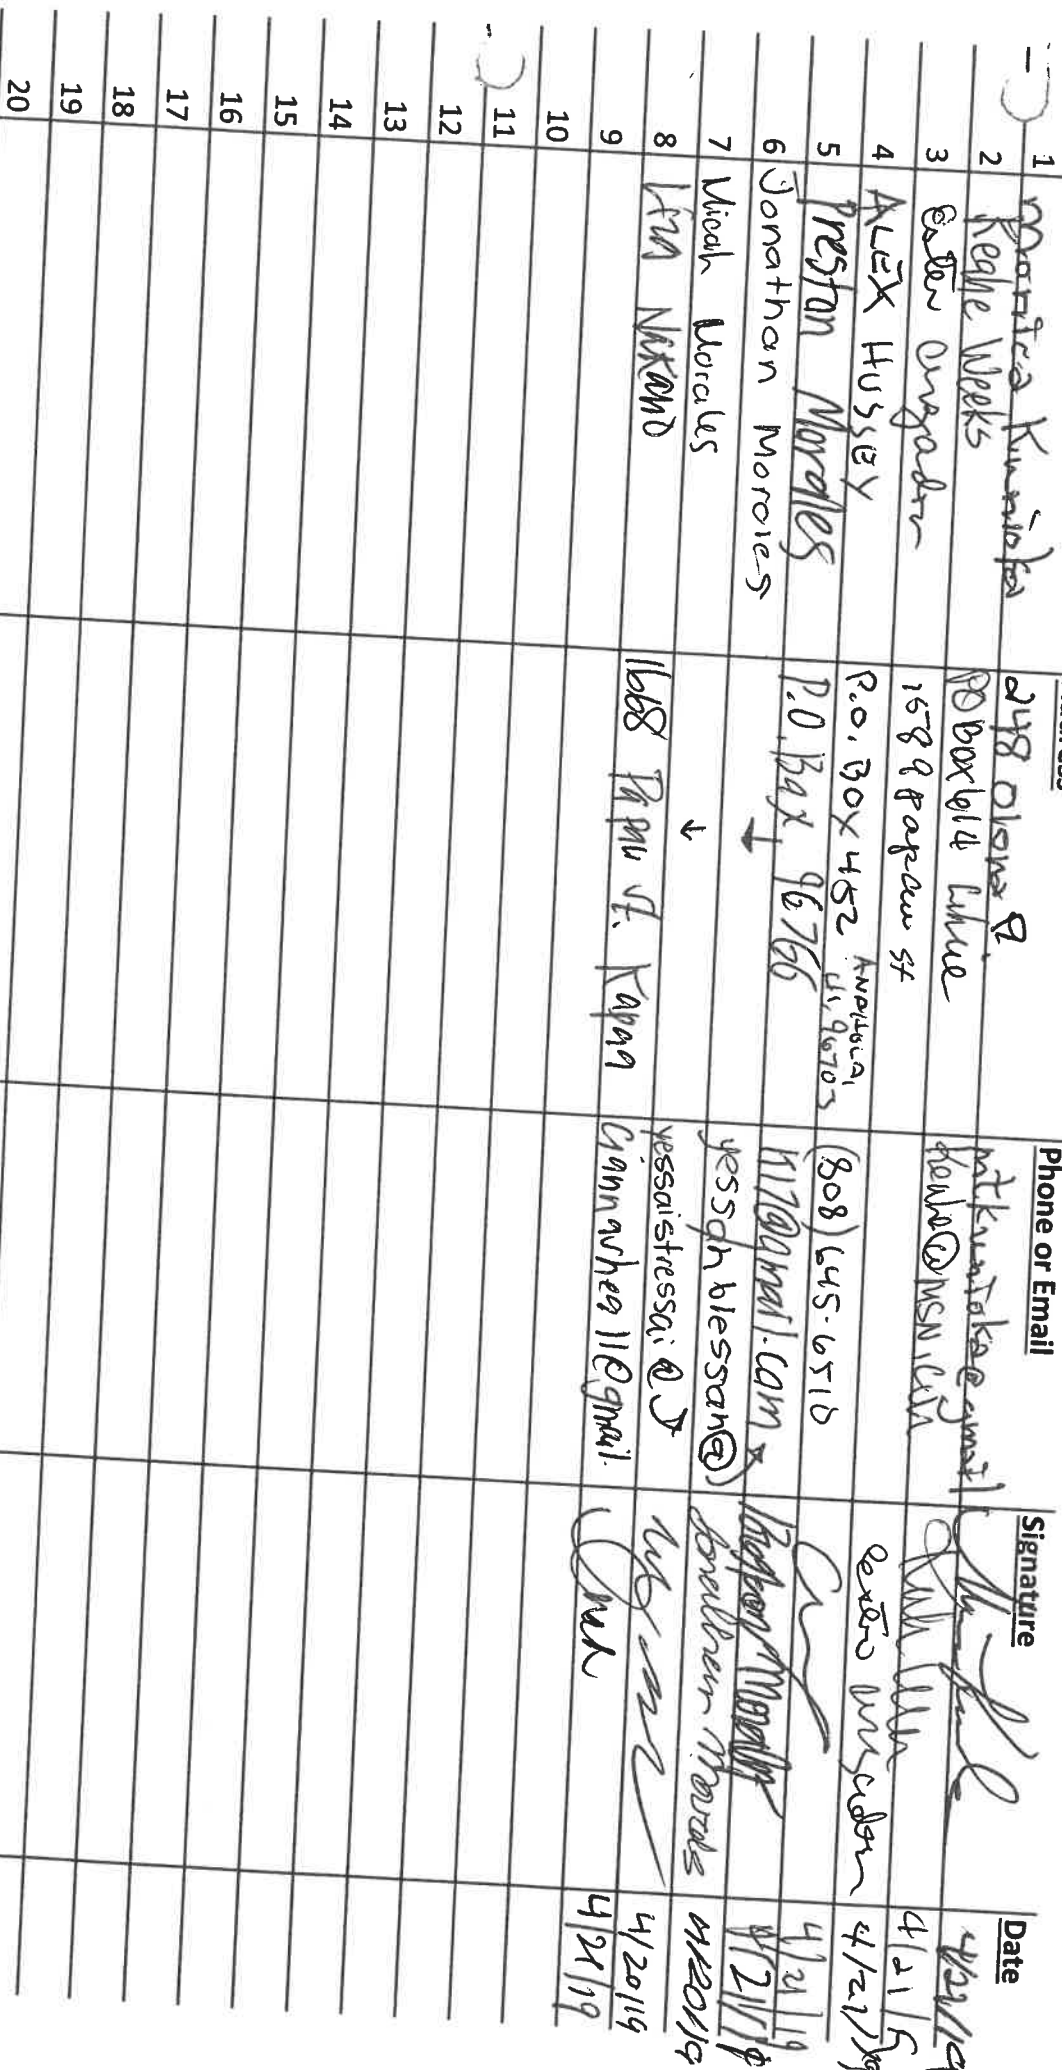 Address Phone or Email Signature Date
1 Monica Kunitake 248 Olona Pl. mtkunitake@gmail 4/22/19
2 Keahe Weeks PO Box 1614 Lihue @msn.com 4/21/19
3 1589 Papau st
4 ALEX HUSSEY P.O. BOX 452 ANAHOLA, HI, 96703 (808) 645-6510 4/21/19
5 Preston Morales P.O. Box 96766 h17@gmail.com Morales 4/21/19
6 Jonathan Morales ↓ yessahblessah@ Morales 4/20/19
7 Micah Morales ↓ yessaistressai@ 4/20/19
8 Lina Nakano 1668 Papau st. Kapaa giannarhea11@gmail. 4/21/19
9
10
11
12
13
14
15
16
17
18
19
20